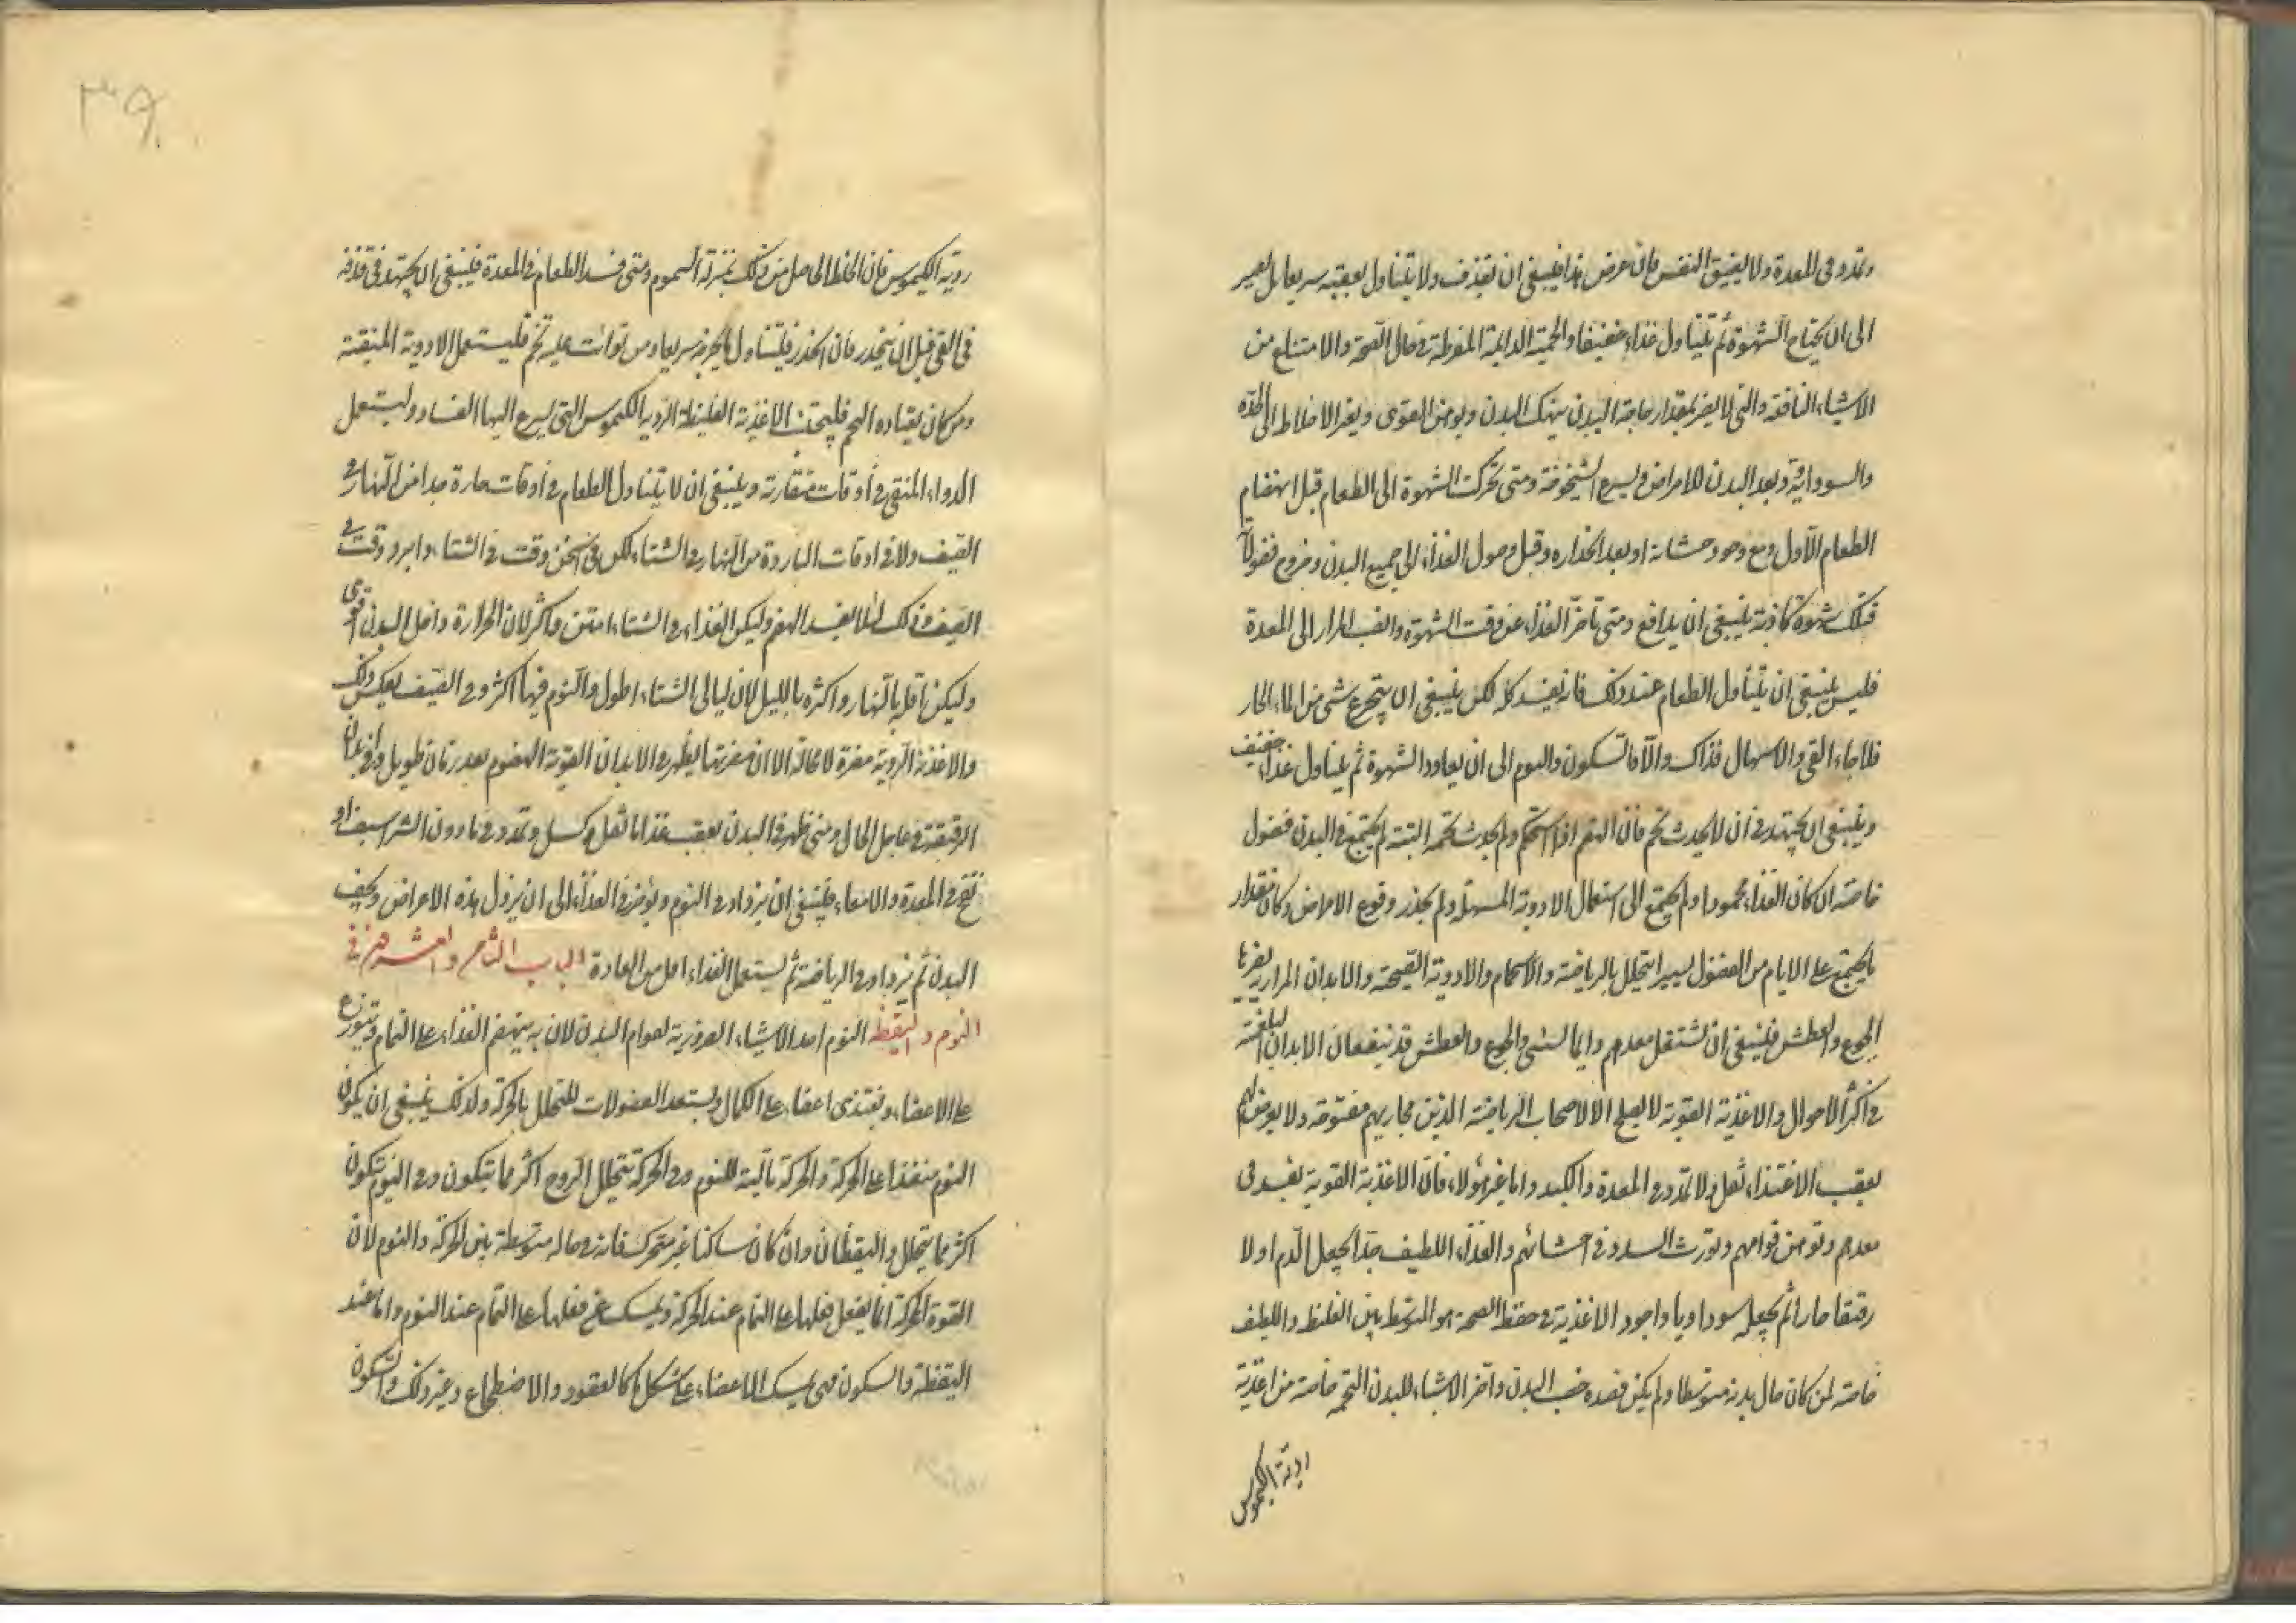 وتمدد في المعدة ولا يضيق النفس فان عرض هذا فينبغي ان يقذف ولا يتناول بعقبه سريعا بل يصبر
الى ان يحتاج الشهوة ثم يتناول غذاء خفيفا والحمية الدايمة المفرطة في حال الصحة والامتناع من
الاشياء النافعة والتي لا يضر بمقدار حاجة البدن ينهك البدن ويوهن القوى ويغير الاخلاط الى الحدة
والسوداوية ويعد البدن للامراض ويسرع الشيخوخة ومتى تحركت الشهوة الى الطعام قبل انهضام
الطعام الاول ومع وجود جشائه او بعد انحداره وقبل وصول الغذاء الى جميع البدن وخروج فضولا
فتلك شهوة كاذبة ينبغي ان يدافع ومتى تأخر الغذاء عن وقت الشهوة وانصب المرار الى المعدة
فليس ينبغي ان يتناول الطعام عند ذلك فانه يفسد كله لكن ينبغي ان يتجرع شي من الماء الحار
فان جاء القي والاسهال فذاك والا فالسكون والنوم الى ان يعاود الشهوة ثم يتناول غذاء خفيف
وينبغي ان يجتهد في ان لا يحدث تخم فان الهضم اذا استحكم ولم يحدث تخمة البتة لم يجتمع في البدن فضول
خاصة ان كان الغذاء محمودا ولم يحتج الى استعمال الادوية المسهلة ولم يحذر وقوع الامراض وكان مقدار
ما يجتمع على الايام من الفضول يسيرا يتحلل بالرياضة والاستحمام والادوية القيحة والابدان المرارية يضر بها
الجوع والعطش فلينبغي ان تشتغل معدهم دايما بشي والجوع والعطش قد ينفعان الابدان البلغمية
في اكثر الاحوال والاغذية القوية لا يصلح الا لاصحاب الرياضة الذين مجاريهم مفتوحة ولا يعرض لهم
بعقب الاغتذاء ثقل ولا تمدد في المعدة والكبد واما غير هؤلاء فان الاغذية القوية يفسد في
معدهم وتوهن قواهم ويورث السدد في احشائهم والغذاء اللطيف جدا يجعل الدم اولا
رقيقا حارا ثم يجعله سوداويا واجود الاغذية في حفظ الصحة هو المتوسط بين الغليظ واللطيف
خاصة لمن كان حال بدنه متوسطا ولم يكن قصده خصب البدن واضر الاشياء للبدن التخمة خاصة من اغذية
ردية الكيموس
٣٩
ردية الكيموس فان الخلط الحاصل من ذلك بمنزلة السموم ومتى فسد الطعام في المعدة فينبغي ان يجتهد في قذفه
في القي قبل ان ينحدر فان انحدر فليتناول ما يخرجه سريعا ومن تواترت عليه تخم فليستعمل الادوية المنقية
ومن كان يعتاده التخم فليجتنب الاغذية الغليظة الردية الكيموس التي يسرع اليها الفساد وليستعمل
الدواء المنقي في اوقات متقاربة وينبغي ان لا يتناول الطعام في اوقات حارة جدا من النهار في
الصيف ولا في اوقات الباردة من النهار في الشتاء لكن في اسخن وقت في الشتاء وابرد وقت في
الصيف وذلك لئلا يفسد الهضم وليكن الغذاء في الشتاء امتن واكثر لان الحرارة داخل البدن اقوى
وليكن اقله بالنهار واكثره بالليل لان ليالي الشتاء اطول والنوم فيها اكثر وفي الصيف بعكس ذلك
والاغذية الردية مضرة لا محالة الا ان مضرتها يظهر في الابدان القوية الهضوم بعد زمان طويل وفي الابدان
الرقيقة في عاجل الحال ومتى ظهر في البدن بعقب غذا ما ثقل وكسل وتمدد في ما دون الشراسيف او
نفخ في المعدة والامعاء فينبغي ان يزداد في النوم ويؤخر في الغذاء الى ان يزول هذه الاعراض ويخف
البدن ثم يزداد في الرياضة ثم يستعمل الغذاء اقل من العادة الباب الثامن والعشرون في
النوم واليقظة النوم احد الاشياء الضرورية لقوام البدن لان به ينهضم الغذاء على التمام ويتوزع
على الاعضاء ويغتذي اعضاء على الكمال ويستعد الفضولات للتحلل بالحركة ولذلك ينبغي ان يكون
النوم متقدما على الحركة والحركة تالية للنوم وفي الحركة يتحلل الروح اكثر مما يتكون وفي النوم يتكون
اكثر مما يتحلل واليقظان وان كان ساكنا غير متحرك فانه في حاله متوسطة بين الحركة والنوم لان
القوة المحركة انما يفعل فعلها على التمام عند الحركة ويمسك عن فعلها على التمام عند النوم واما عند
اليقظة والسكون فهي يمسك الاعضاء على شكل ما كالقعود والاضطجاع وغير ذلك والسكون